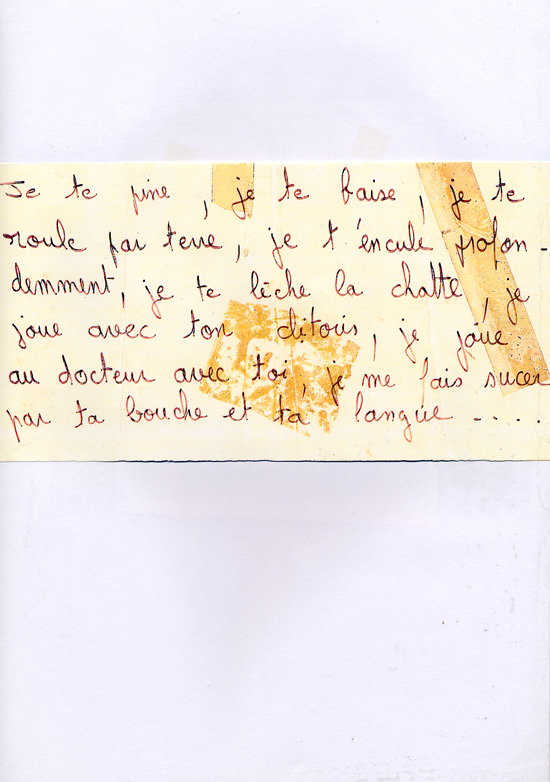 Je te pine, je te baise, je te
roule par terre, je t'encule profon-
demment, je te lèche la chatte, je
joue avec ton clitoris, je joue
au docteur avec toi, je me fais sucer
par ta bouche et ta langue .....